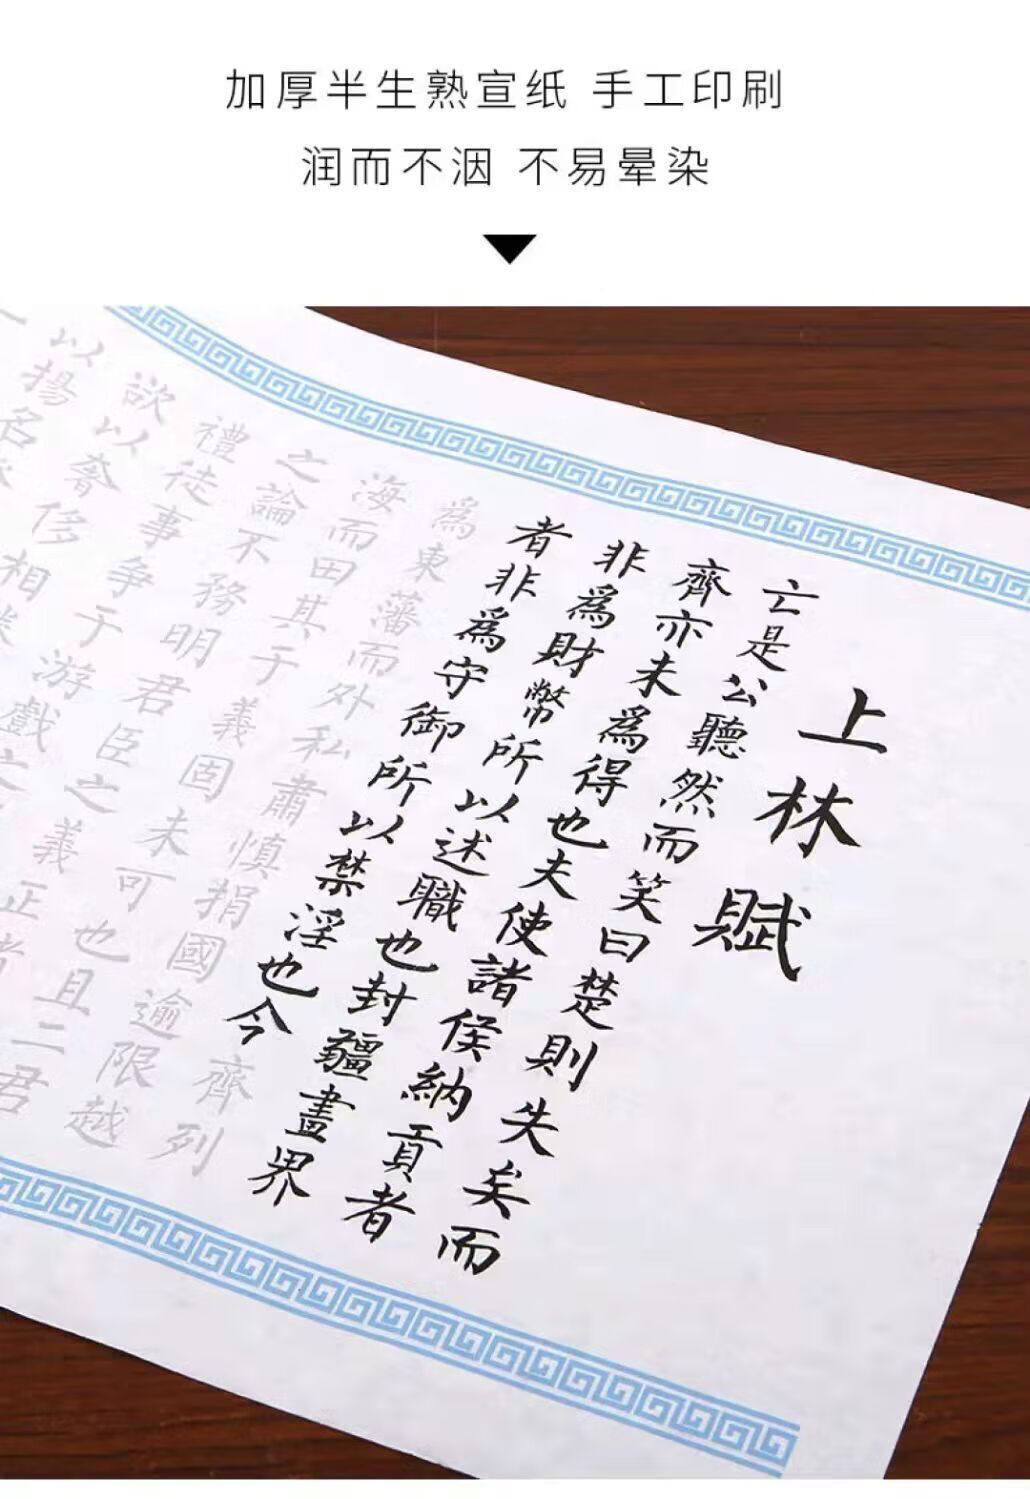 加厚半生熟宣纸 手工印刷
润而不洇 不易晕染
上林賦
亡是公聽然而笑曰楚則失矣而
齊亦未為得也夫使諸侯納貢者
非為財幣所以述職也封疆畫界
者非為守御所以禁淫也今齊列
為東藩而外私肅慎捐國逾限越
海而田其于義固未可也且二君
之論不務明君臣之義正
禮徒事争于游戲之
欲以奢侈相
以揚名